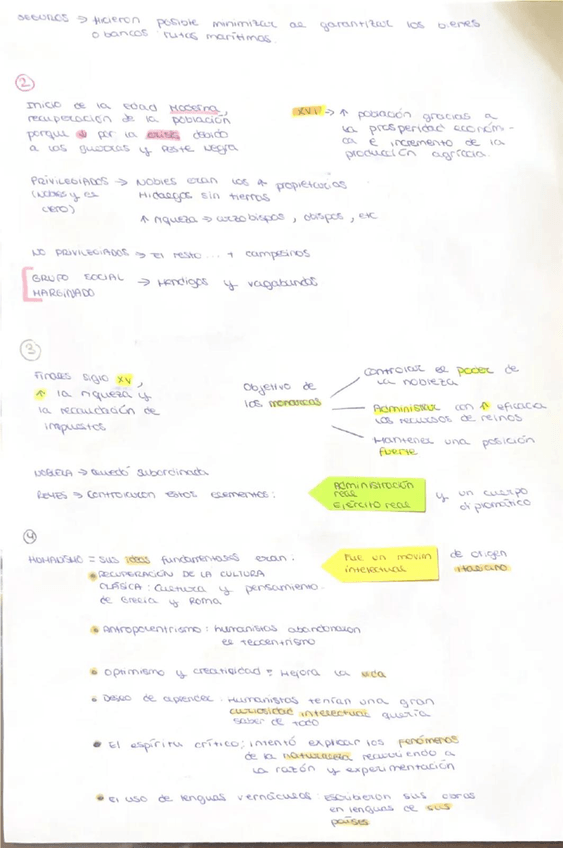 SEGUROS → Hicieron posible minimizar al garantizar los bienes
o bancos rutas marítimas.
2
Inicio de la edad Moderna,
recuperación de la población
porque ↓ por la crisis debido
a las guerras y Peste Negra
XVI → ↑ población gracias a
la prosperidad económi-
ca E incremento de la
producción agrícola.
PRIVILEGIADOS → Nobles eran los + propietarios
(Nobles y el
clero)
Hidalgos sin tierras
↑ riqueza → arzobispos, obispos, etc
NO PRIVILEGIADOS → El resto... + campesinos
GRUPO SOCIAL
MARGINADO
→ Mendigos y vagabundos
3
Finales siglo XV,
↑ la riqueza y
la recaudación de
impuestos
Objetivo de
los monarcas
Controlar el poder de
la nobleza
Administrar con ↑ eficacia
los recursos de reinos
Mantener una posición
fuerte
NOBLEZA → quedó subordinada
REYES → Controlaron estos elementos:
Administración
real
Ejército real
y un cuerpo
diplomático
4
HUMANISMO = sus ideas fundamentales eran:
Fue un movim
intelectual
de origen
italiano
RECUPERACIÓN DE LA CULTURA
CLÁSICA: Cultura y pensamiento
de Grecia y Roma
Antropocentrismo: humanistas abandonaron
el teocentrismo
Optimismo y creatividad: Mejora la vida
Deseo de aprender: Humanistas tenían una gran
curiosidad intelectual quería
saber de todo
El espíritu crítico; intentó explicar los fenómenos
de la naturaleza recurriendo a
la razón y experimentación
El uso de lenguas vernáculas: escribieron sus obras
en lenguas de sus
países